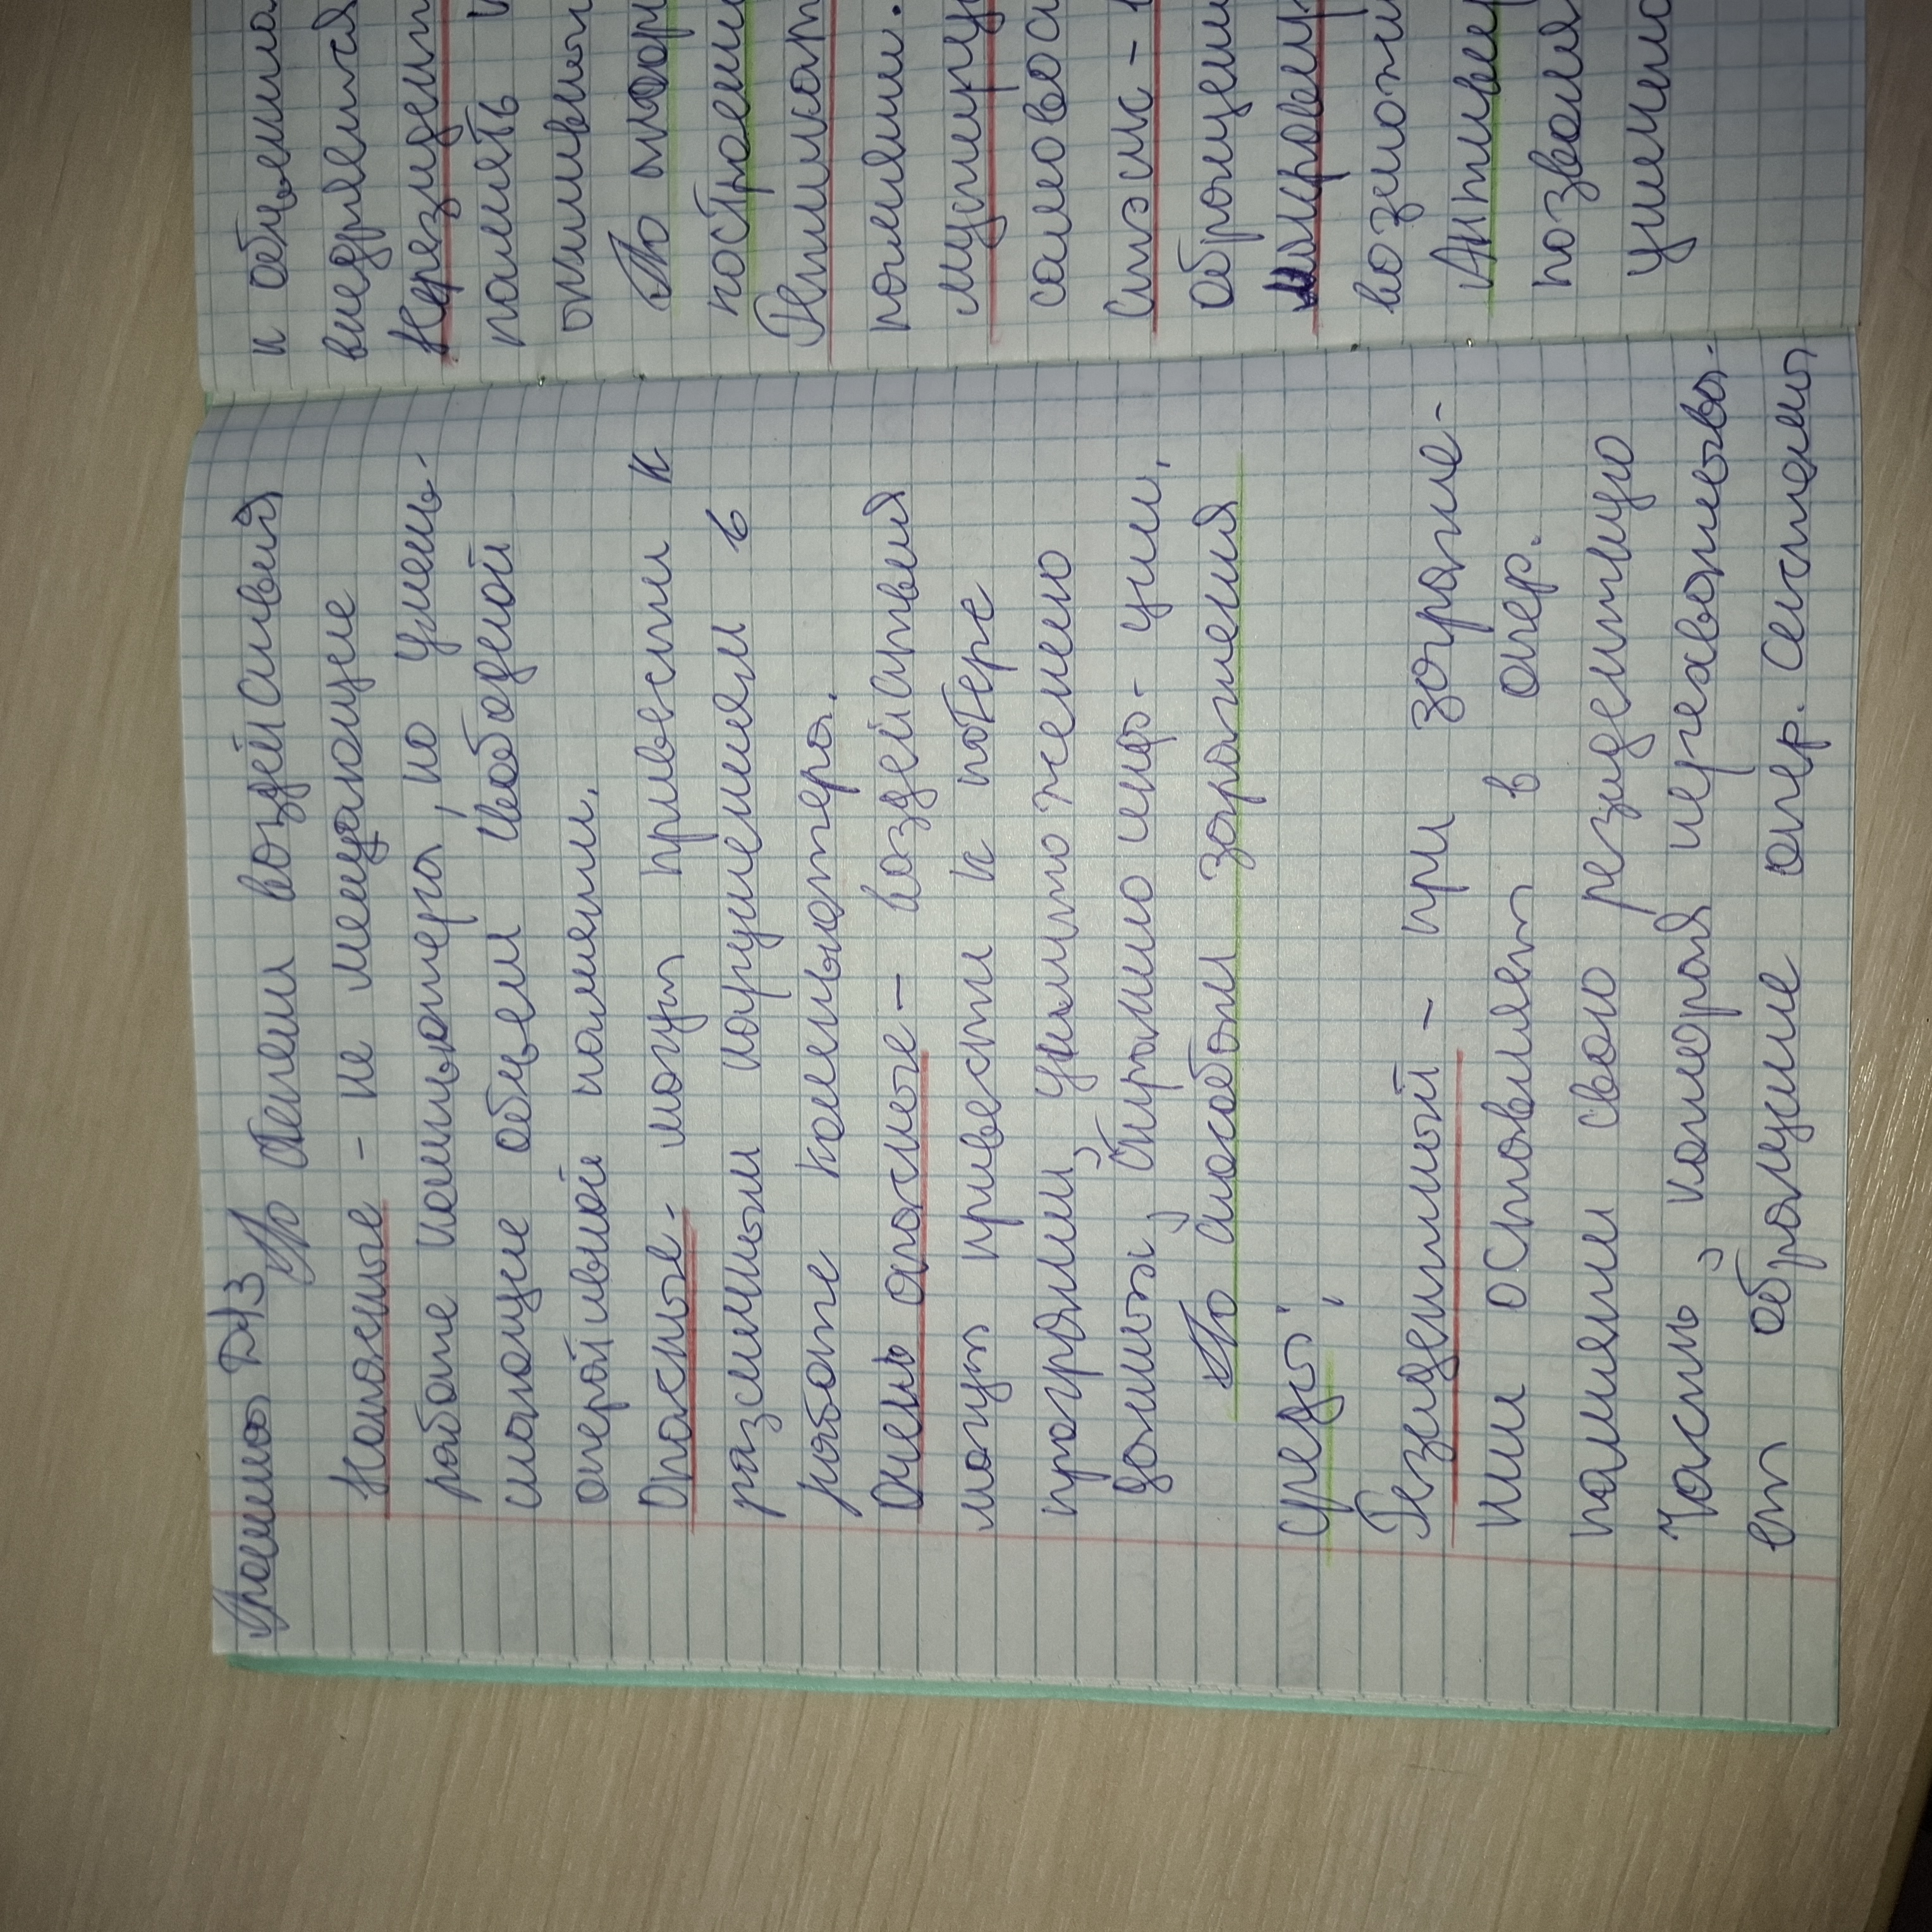 Прошлое ДЗ
По степени воздействия
Неопасные - не мешающие
работе компьютера, но умень-
шающие объем свободной
оперативной памяти.
Опасные - могут привести к
различным нарушениям в
работе компьютера.
Очень опасные - воздействия
могут привести к потере
программ, уничтожению
данных, стиранию инф-ции.
По способам заражения
среды:
Резидентный - при зараже-
нии оставляет в опер.
памяти свою резидентную
часть, которая перехватыва-
ет обращение опер. системы
к объектам
внедряется
Нерезидент
память
активны
По алгор
построени
Репликат
копии.
мутирую
самовос
Стэлс -
обращени
возможн
Антиви
позволя
уничто